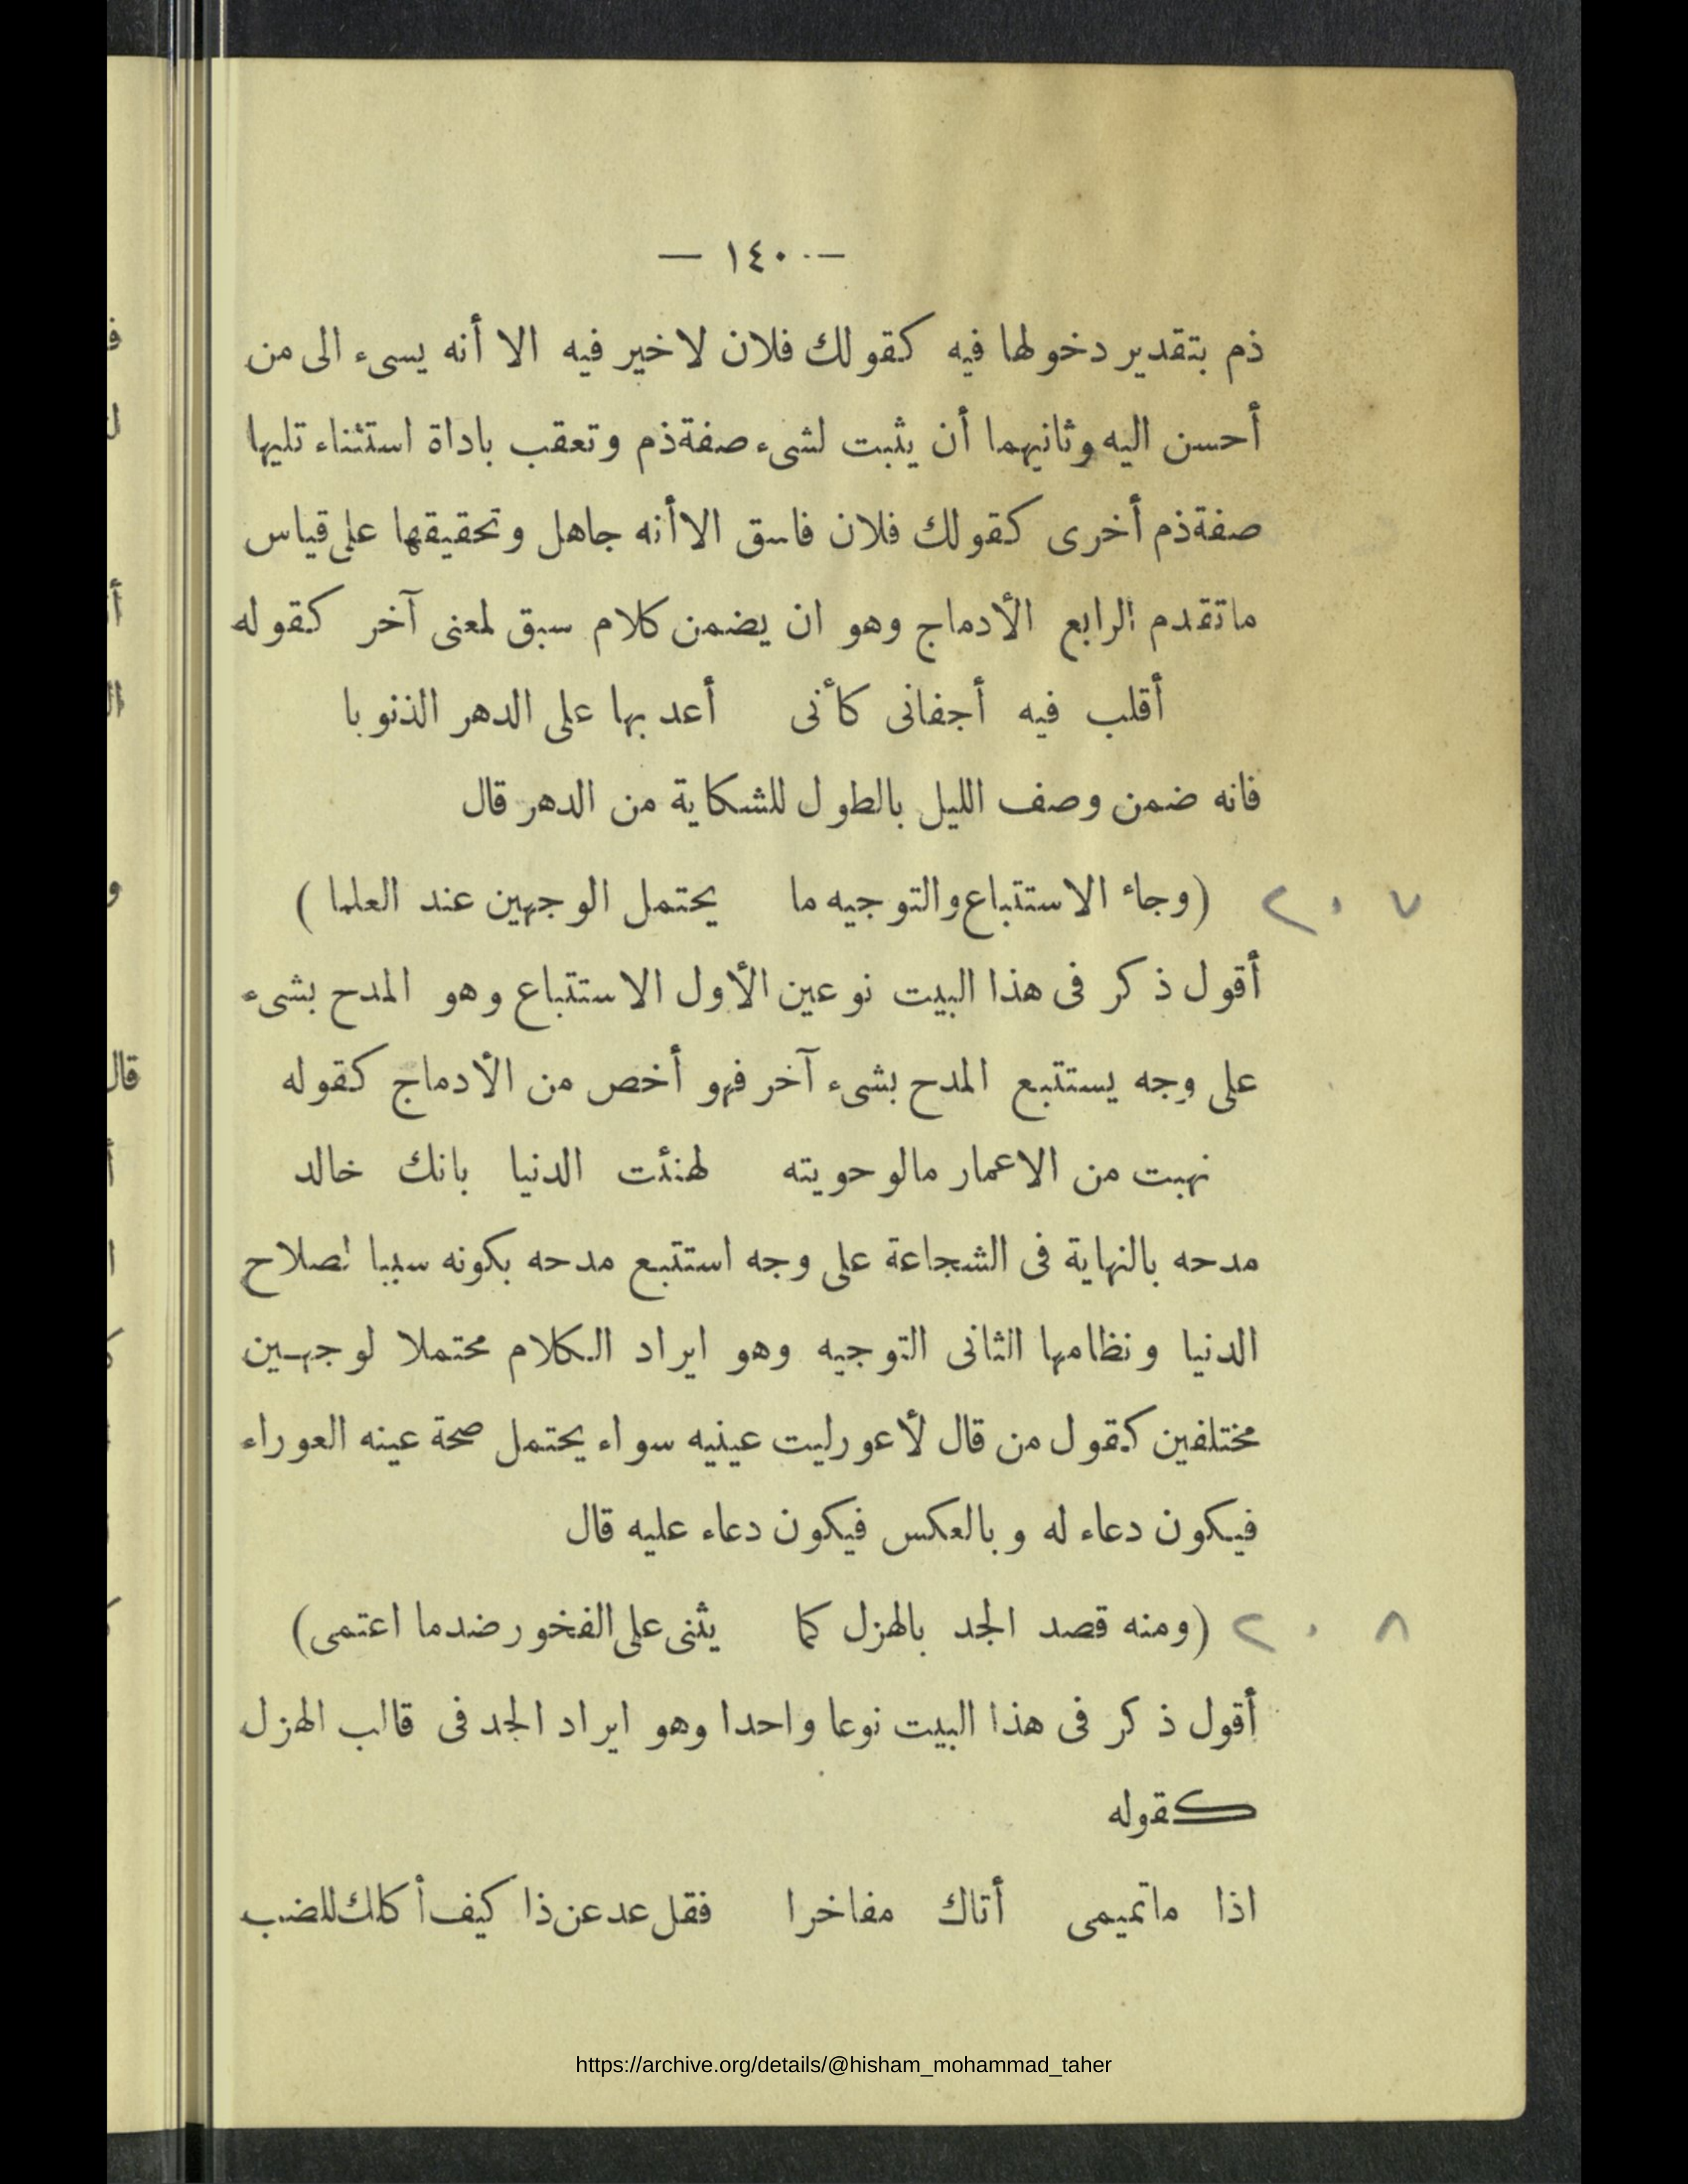 — ١٤٠ —
ذم بتقدير دخولها فيه كقولك فلان لاخير فيه الا أنه يسىء الى من
أحسن اليه وثانيهما أن يثبت لشىء صفة ذم وتعقب باداة استثناء تليها
صفة ذم أخرى كقولك فلان فاسق الا أنه جاهل وتحقيقها على قياس
ماتقدم الرابع الأدماج وهو ان يضمن كلام سبق لمعنى آخر كقوله
أقلب فيه أجفانى كأنى أعد بها على الدهر الذنوبا
فانه ضمن وصف الليل بالطول للشكاية من الدهر قال
٢٠٧ (وجاء الاستتباع والتوجيه ما يحتمل الوجهين عند العلما)
أقول ذكر فى هذا البيت نوعين الأول الاستتباع وهو المدح بشىء
على وجه يستتبع المدح بشىء آخر فهو أخص من الأدماج كقوله
نهبت من الاعمار مالو حويته لهنئت الدنيا بانك خالد
مدحه بالنهاية فى الشجاعة على وجه استتبع مدحه بكونه سببا لصلاح
الدنيا ونظامها الثانى التوجيه وهو ايراد الكلام محتملا لوجهين
مختلفين كقول من قال لأعور ليت عينيه سواء يحتمل صحة عينه العوراء
فيكون دعاء له وبالعكس فيكون دعاء عليه قال
٢٠٨ (ومنه قصد الجد بالهزل كما يثنى على الفخور ضد ما اعتمى)
أقول ذكر فى هذا البيت نوعا واحدا وهو ايراد الجد فى قالب الهزل
كقوله
اذا ماتميمى أتاك مفاخرا فقل عد عن ذا كيف أكلك للضب
قال
https://archive.org/details/@hisham_mohammad_taher